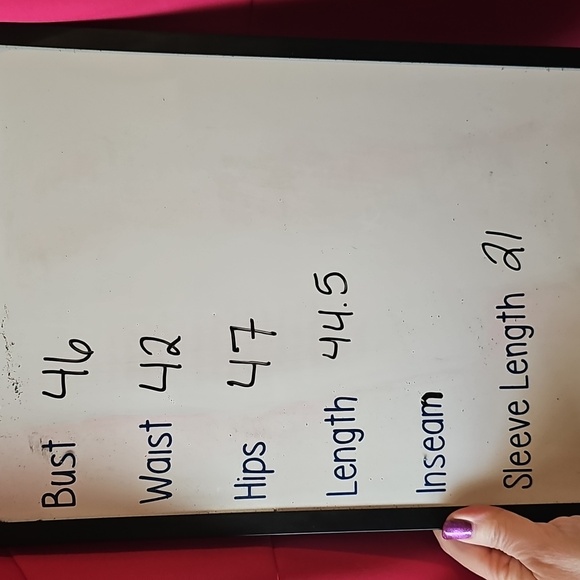 Bust 46
Waist 42
Hips 47
Length 44.5
Inseam
Sleeve Length 21